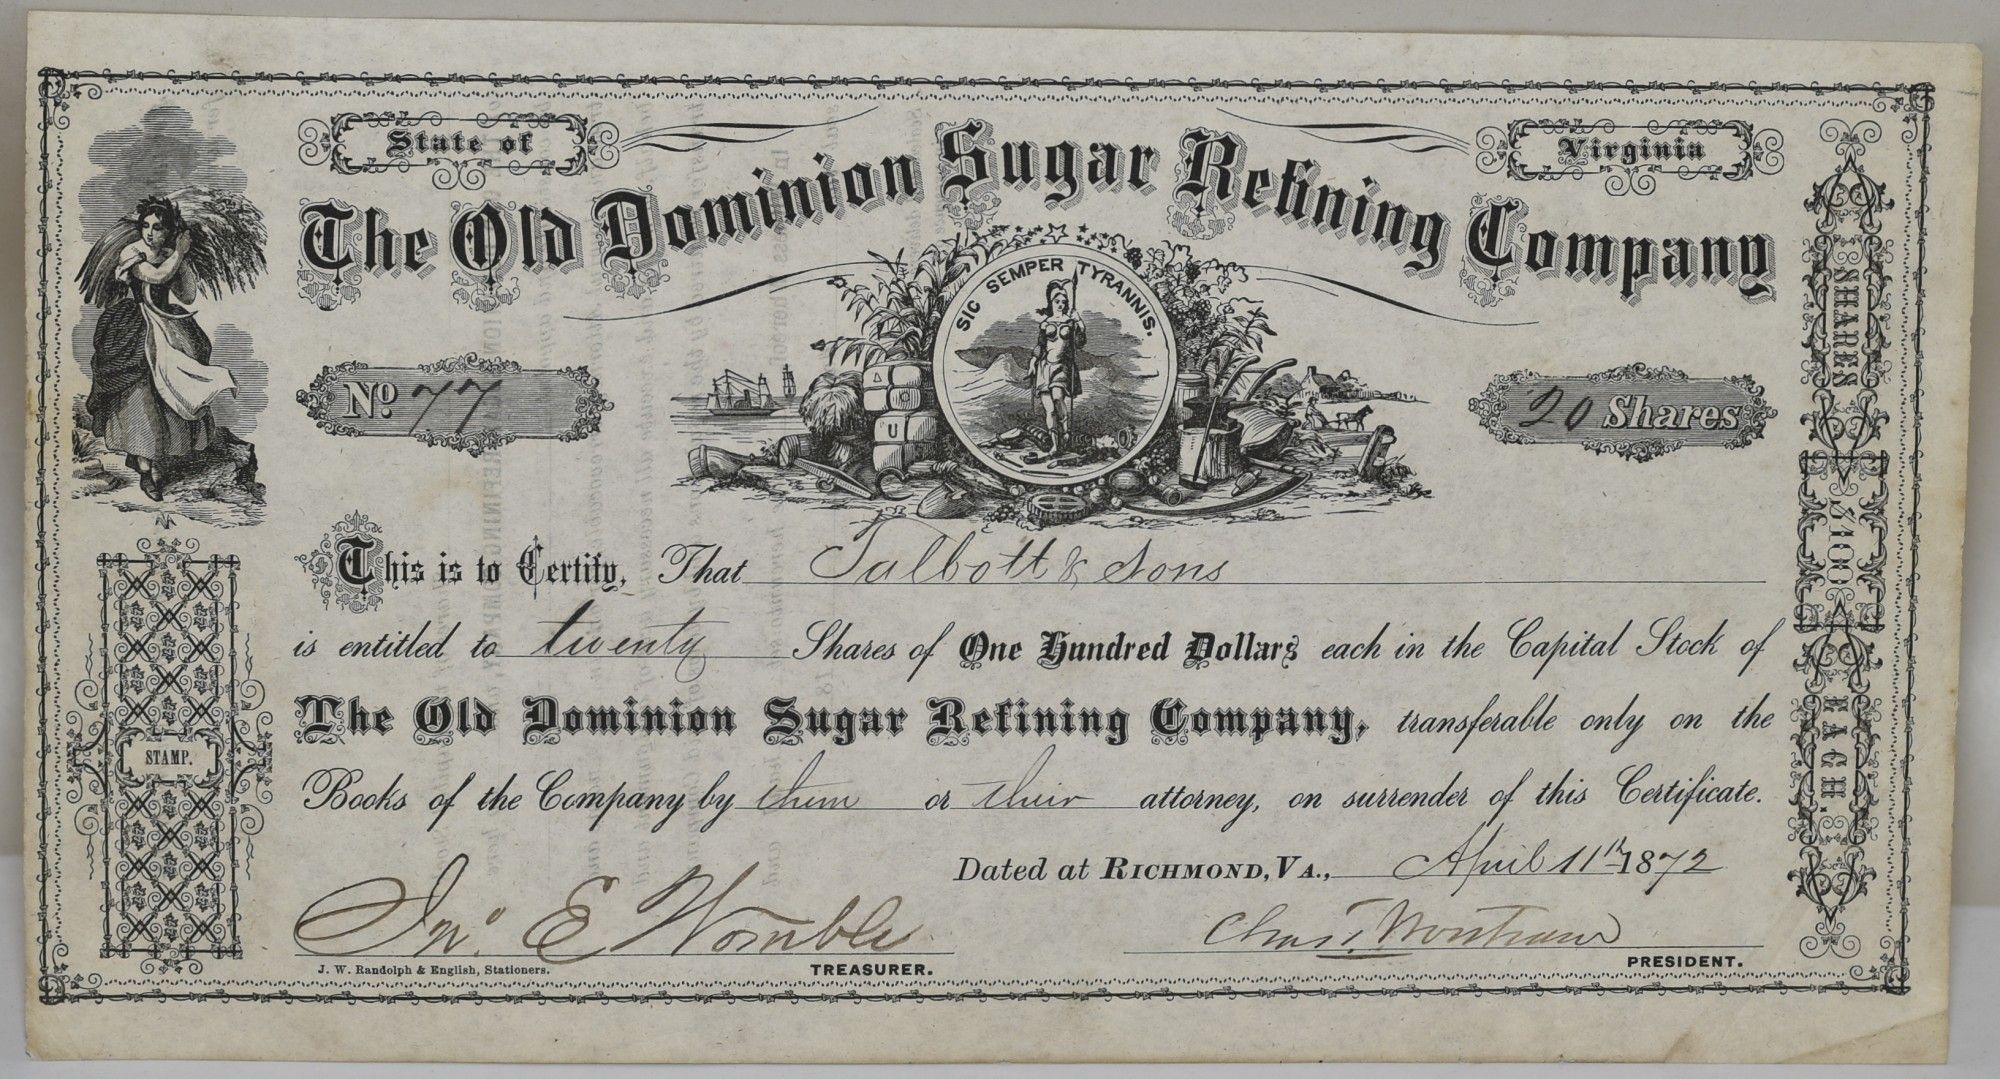 State of Virginia
The Old Dominion Sugar Refining Company
SIC SEMPER TYRANNIS.
No. 77
20 Shares
U
This is to Certify, That Talbott & Sons
is entitled to twenty Shares of One Hundred Dollars each in the Capital Stock of
The Old Dominion Sugar Refining Company, transferable only on the
Books of the Company by them or their attorney, on surrender of this Certificate.
Dated at RICHMOND, VA., April 11th 1872
Jno. E Womble
Chas. T. Wortham
J. W. Randolph & English, Stationers.
TREASURER.
PRESIDENT.
STAMP.
SHARES $100 EACH.